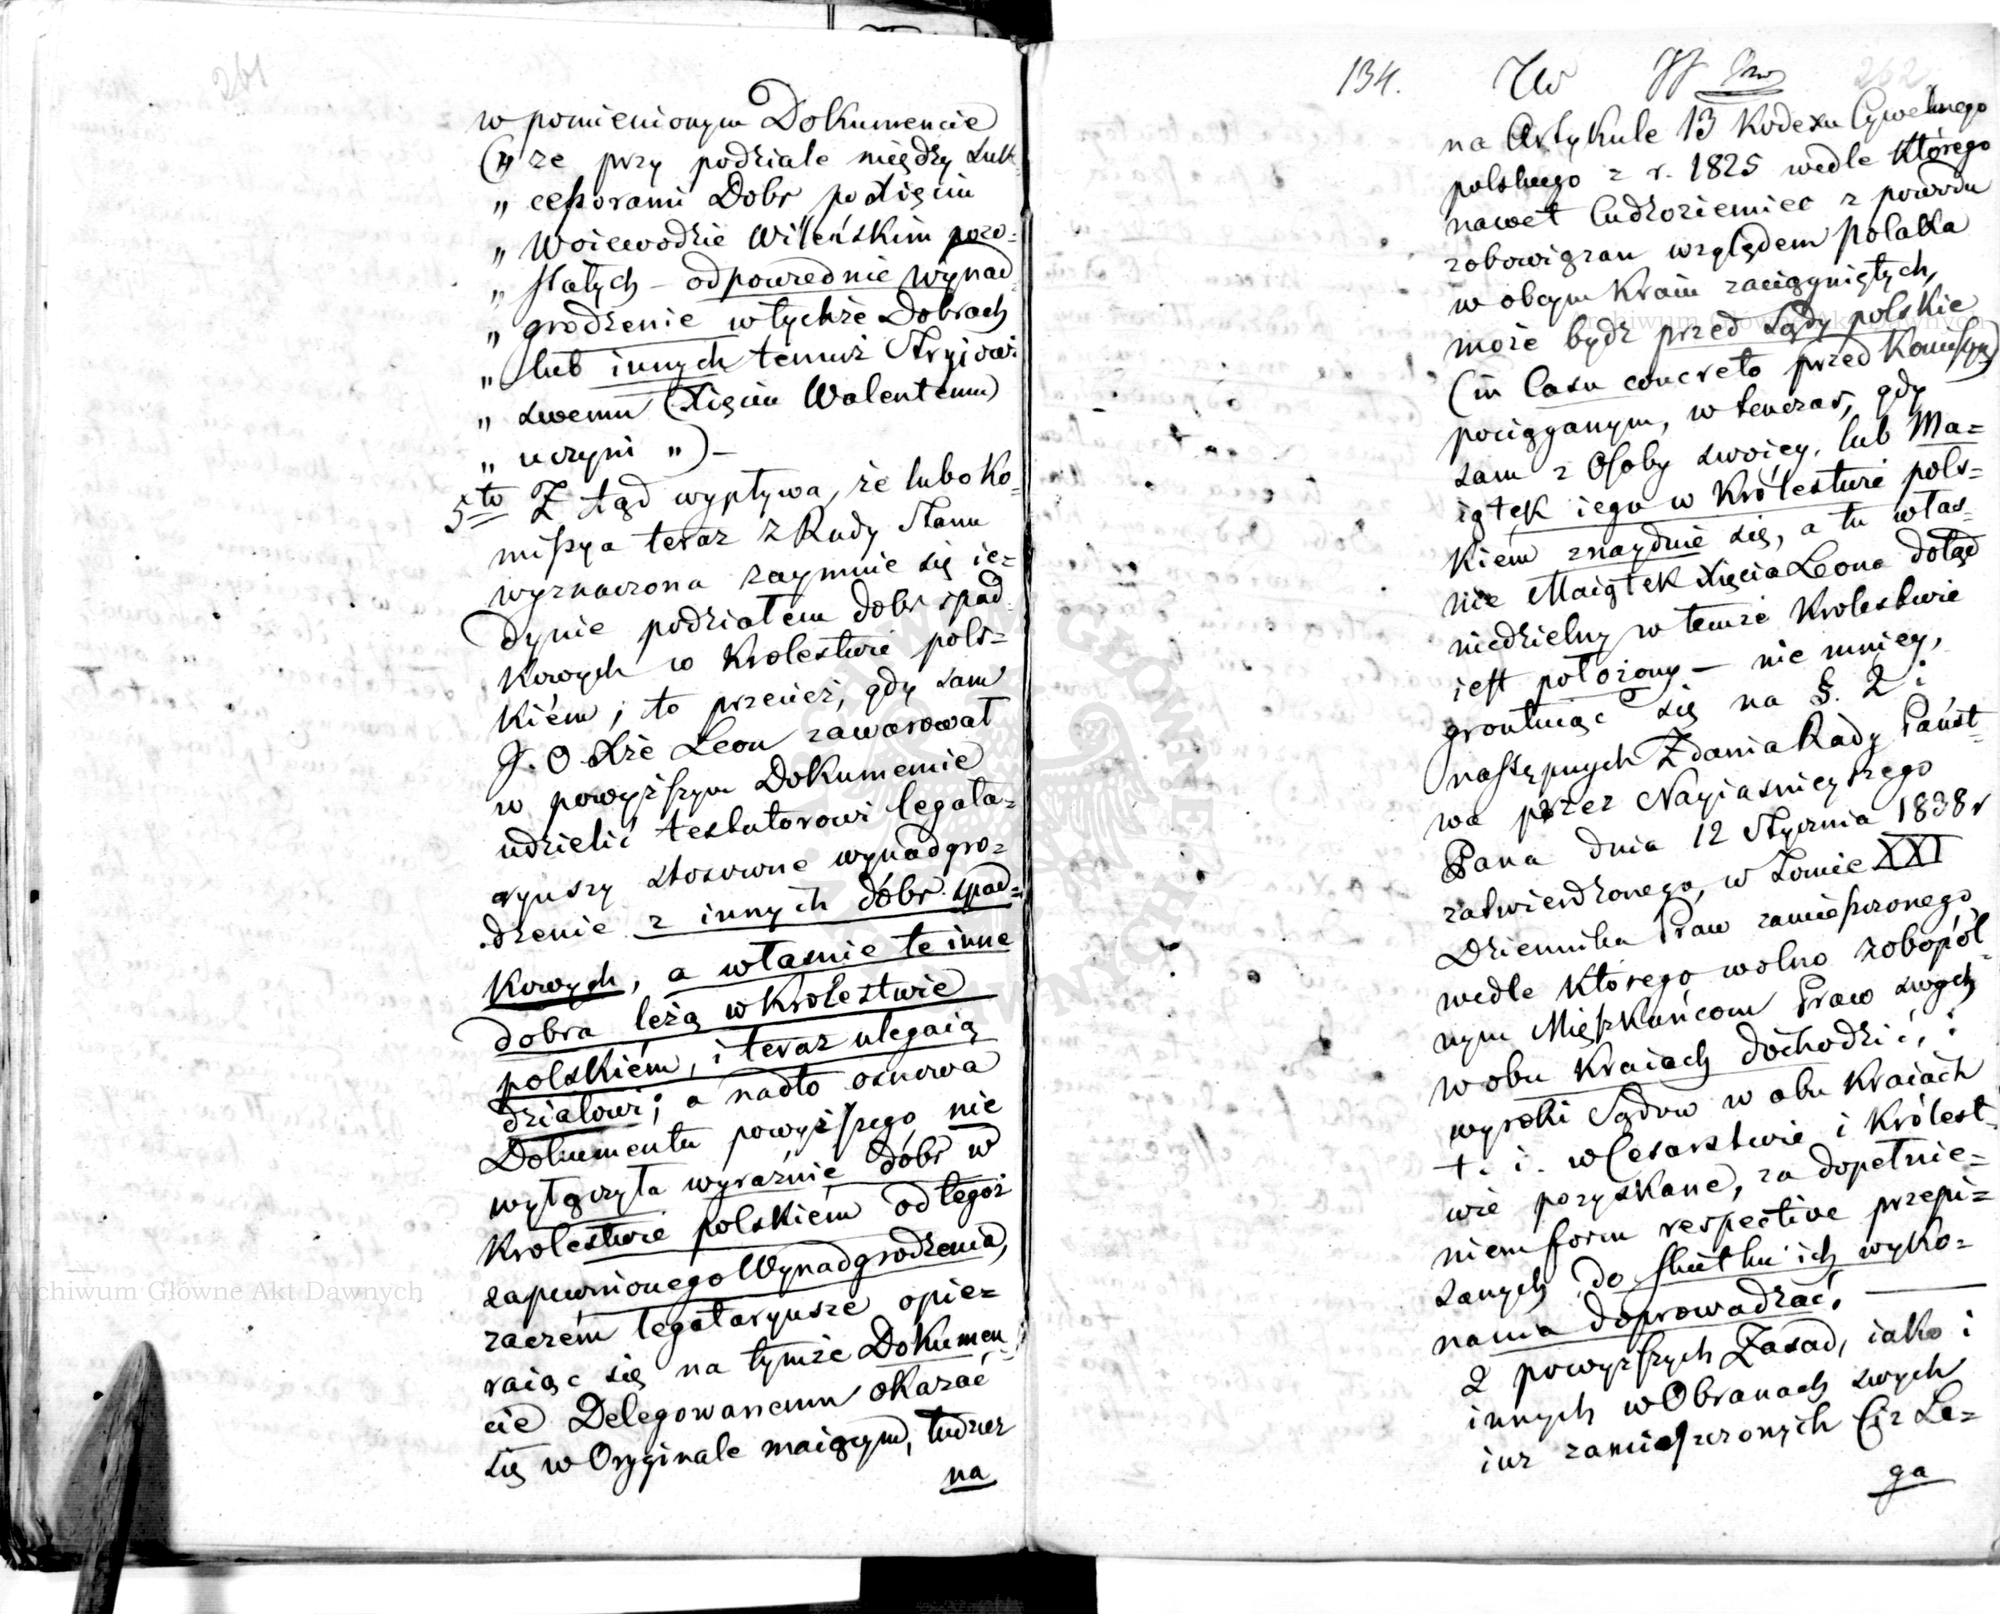 261
w pomienionym Dokumencie
(„ że przy podziale między Suk-
„ cessorami Dobr po Xięciu
„ Woiewodzie Wileńskim pozo-
„ stałych – odpowiednie wynad-
„ grodzenie w tychże Dobrach
„ lub innych temuż Stryiowi
„ swemu (Xięciu Walentemu)
„ uczyni „) –
5to Z tąd wypływa, że lubo Ko-
missya teraz z Rady Stanu
wyznaczona zaymuie się ie-
dynie podziałem dobr spad-
kowych w Krolestwie pols-
kiém; to przecież, gdy sam
J. O. Xże Leon zawarował
w powyższym Dokumencie
udzielić testatorowi legata-
ryuszy stosowne wynadgro-
dzenie z innych dóbr spad-
kowych, a własnie te inne
dobra leżą w Krolestwie
polskiém, i teraz ulegaią
działowi; a nadto osnowa
Dokumentu powyższego nie
wyłączyła wyraźnie dóbr w
Krolestwie polskiém od tegoż
zapewnionego Wynadgrodzenia,
zaczém legataryusze opie-
raiąc się na tymże Dokumen-
cie Delegowanemu okazać
się w Oryginale maiącym, tudzież
na
134.
262
na Artykule 13 Kodexu Cywilnego
polskiego z r. 1825 wedle którego
nawet Cudzoziemiec z powodu
zobowiązan względem Polaka
w obcym Kraiu zaciągniętych,
może bydź przed Sądy polskie
(in Casu concreto przed Komissyą)
pociąganym, w tenczas, gdy
sam z Osoby swoiey, lub Ma-
iątek iego w Królestwie pols-
kiém znayduie się, a tu włas-
nie Maiątek Xięcia Leona dotąd
niedzielny w temże Krolestwie
iest położony – nie mniey,
gruntuiąc się na §. 2 i
następnych Zdania Rady Państ-
wa przez Nayiasnieyszego
Pana dnia 12 Stycznia 1838 r
zatwierdzonego, w Tomie XXI
Dziennika Praw zamieszczonego,
wedle którego wolno zobopól-
nym Mieszkańcom Praw swych
w obu Kraiach dochodzić, i
wyroki Sądow w obu Kraiach
t. i. w Cesarstwie i Królest-
wie pozyskane, za dopełnie-
niem form respective przepi-
sanych do skutku ich wyko-
nania doprowadzać. –
Z powyższych Zasad, iako i
innych w Obronach swych
iuz zamieszczonych
ga
Archiwum Główne Akt Dawnych
Archiwum Główne Akt Dawnych
ARCHIWUM GŁÓWNE AKT DAWNYCH